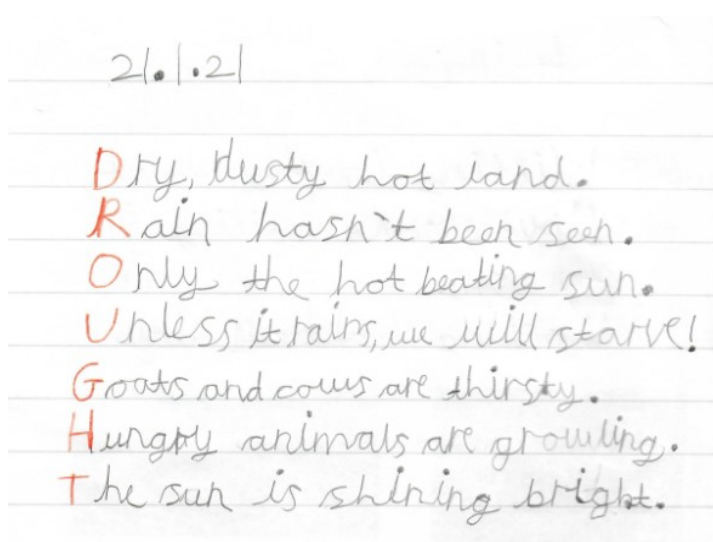 21.1.21
Dry, dusty hot land.
Rain hasn't been seen.
Only the hot beating sun.
Unless it rains, we will starve!
Goats and cows are thirsty.
Hungry animals are growling.
The sun is shining bright.